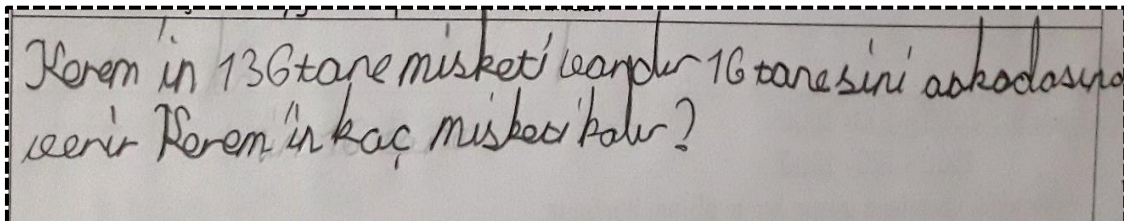 Kerem'in 136 tane misketi vardır 16 tanesini arkadaşına
verir Kerem'in kaç misketi kalır?